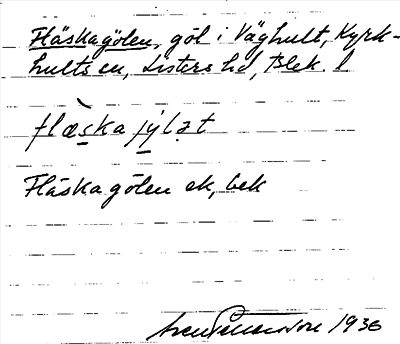 Fläskagölen, göl i Väghult, Kyrk-
hults sn, Listers hd, Blek. l
flæ̀ska jy̱lət
Fläskagölen ek, bek
1936